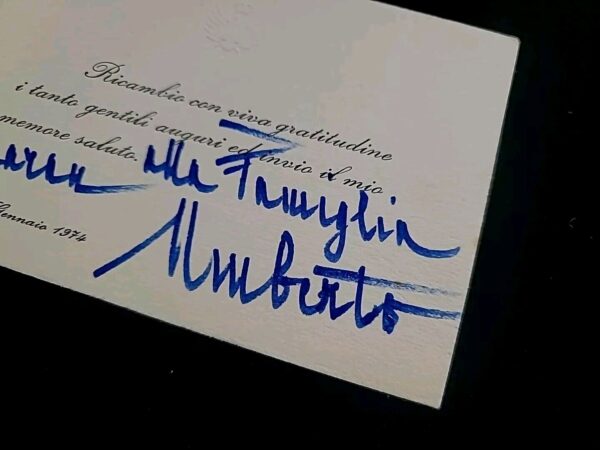 Ricambio con viva gratitudine
i tanto gentili auguri ed invio il mio
memore saluto.
alla Famiglia
Gennaio 1974
Umberto